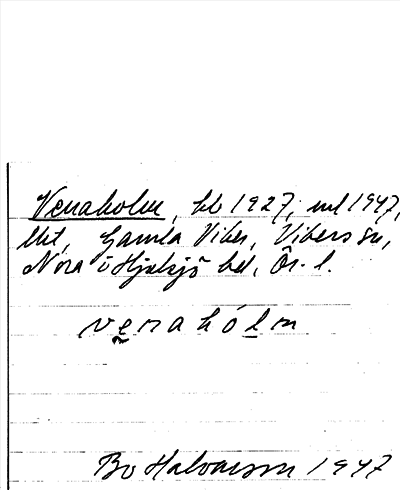 Venaholm, kb 1927, uel 1947,
Uht, Gamla Viker, Vikers sn,
Nora o Hjulsjö bd, Ör. l.
venahólm
Bo Halvarson 1947